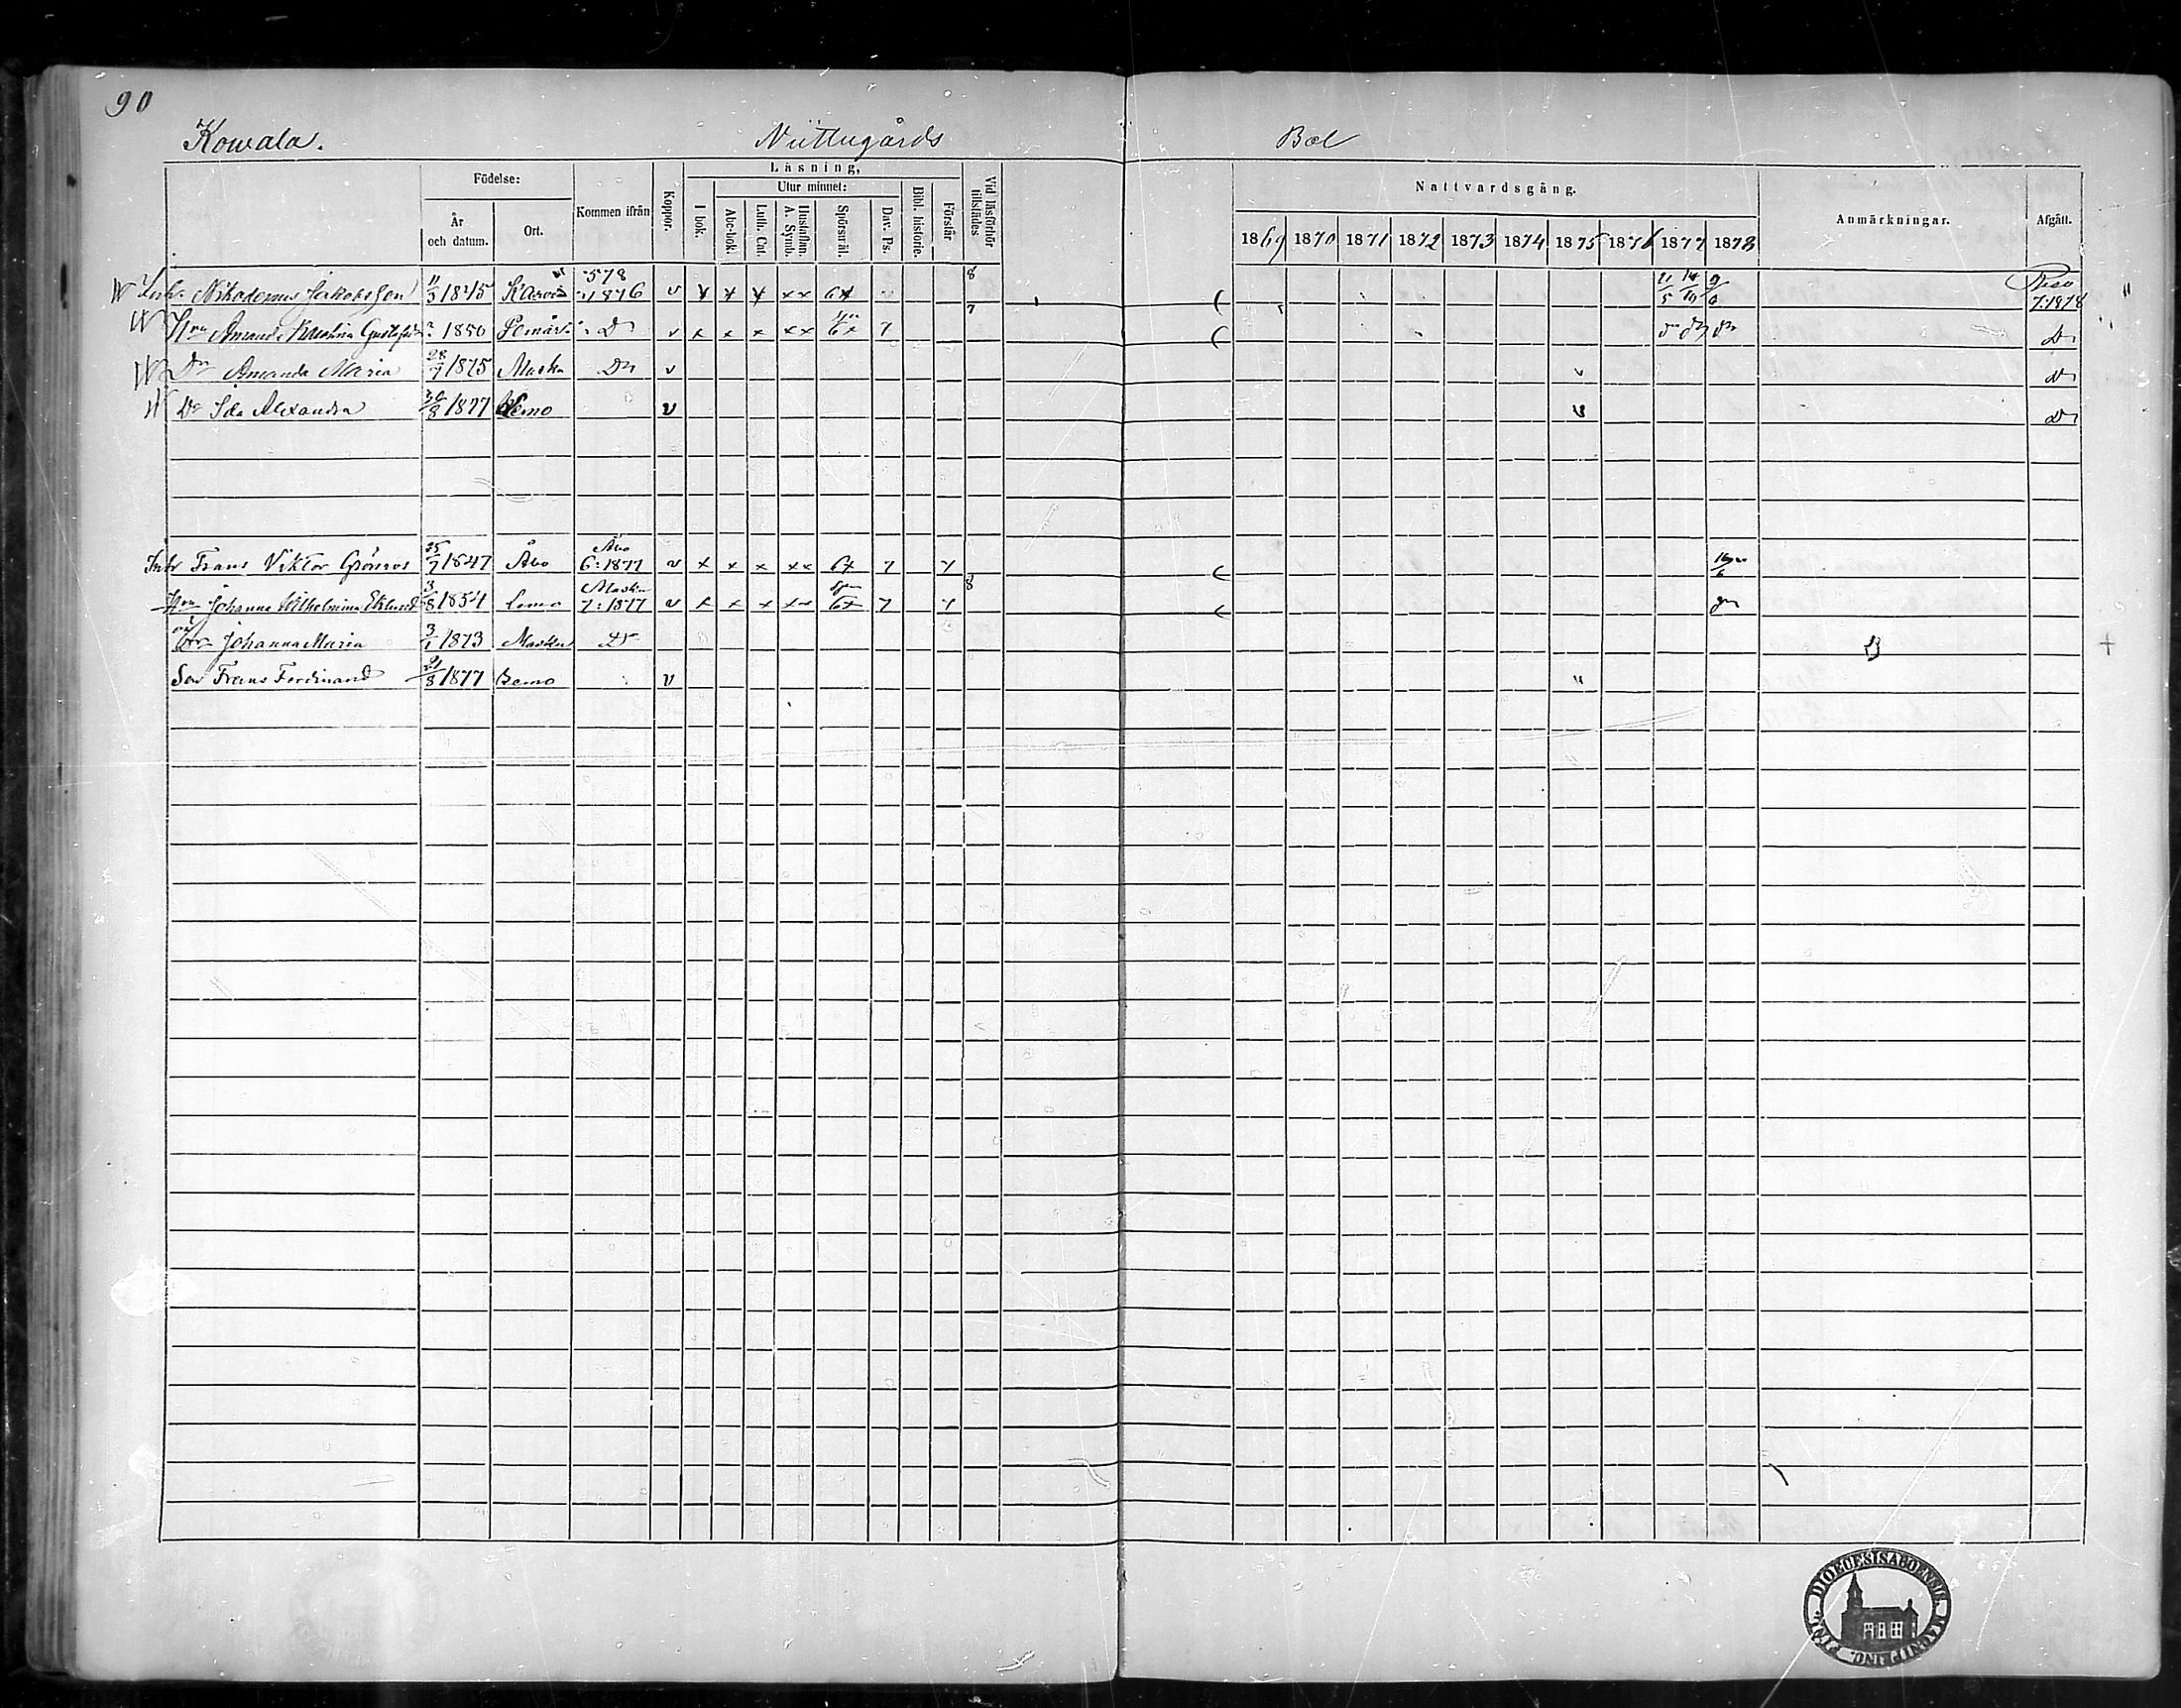 90
Kowala. Nuttugårds Bol
Födelse: År och datum. Ort. Kommen ifrån Koppor. Läsning, I bok. Utur minnet: Abc-bok. Luth. Cat. Hustaflan. A. Symb. Spörsmål. Dav. Ps. Bibl. historie. Förstår Vid läsförhör tillstädes Nattvardsgång. 1869 1870 1871 1872 1873 1874 1875 1876 1877 1878 Anmärkningar. Afgått.
Nikodemus Jakobsson 11/3 1845 578 1876 v x x x xx 6x 8 21/5 14/10 9/6 Reso 7:1878
Hru Amanda Karolina Gustafsd 1850 Lemo Do v x x x xx 6x 7 7 do do do Do
Dr Amanda Maria 28/7 1875 Masku Do v v Do
Dr Ida Alexandra 30/8 1877 Lemo v v Do
Inh Frans Viktor Grönroos 25/7 1847 Åbo Åbo 6:1877 v x x x xx 6x 7 7 16/6
Hru Johanna Wilhelmina Eklund 3/8 1854 Lemo Masku 7:1877 v x x x xx 6x 7 7 8
Johanna Maria 3/1 1873 Masku Do +
Son Frans Ferdinand 21/8 1877 Lemo v "
DIOECESIS ABOENSIS MAGNI PRINC. FINL.